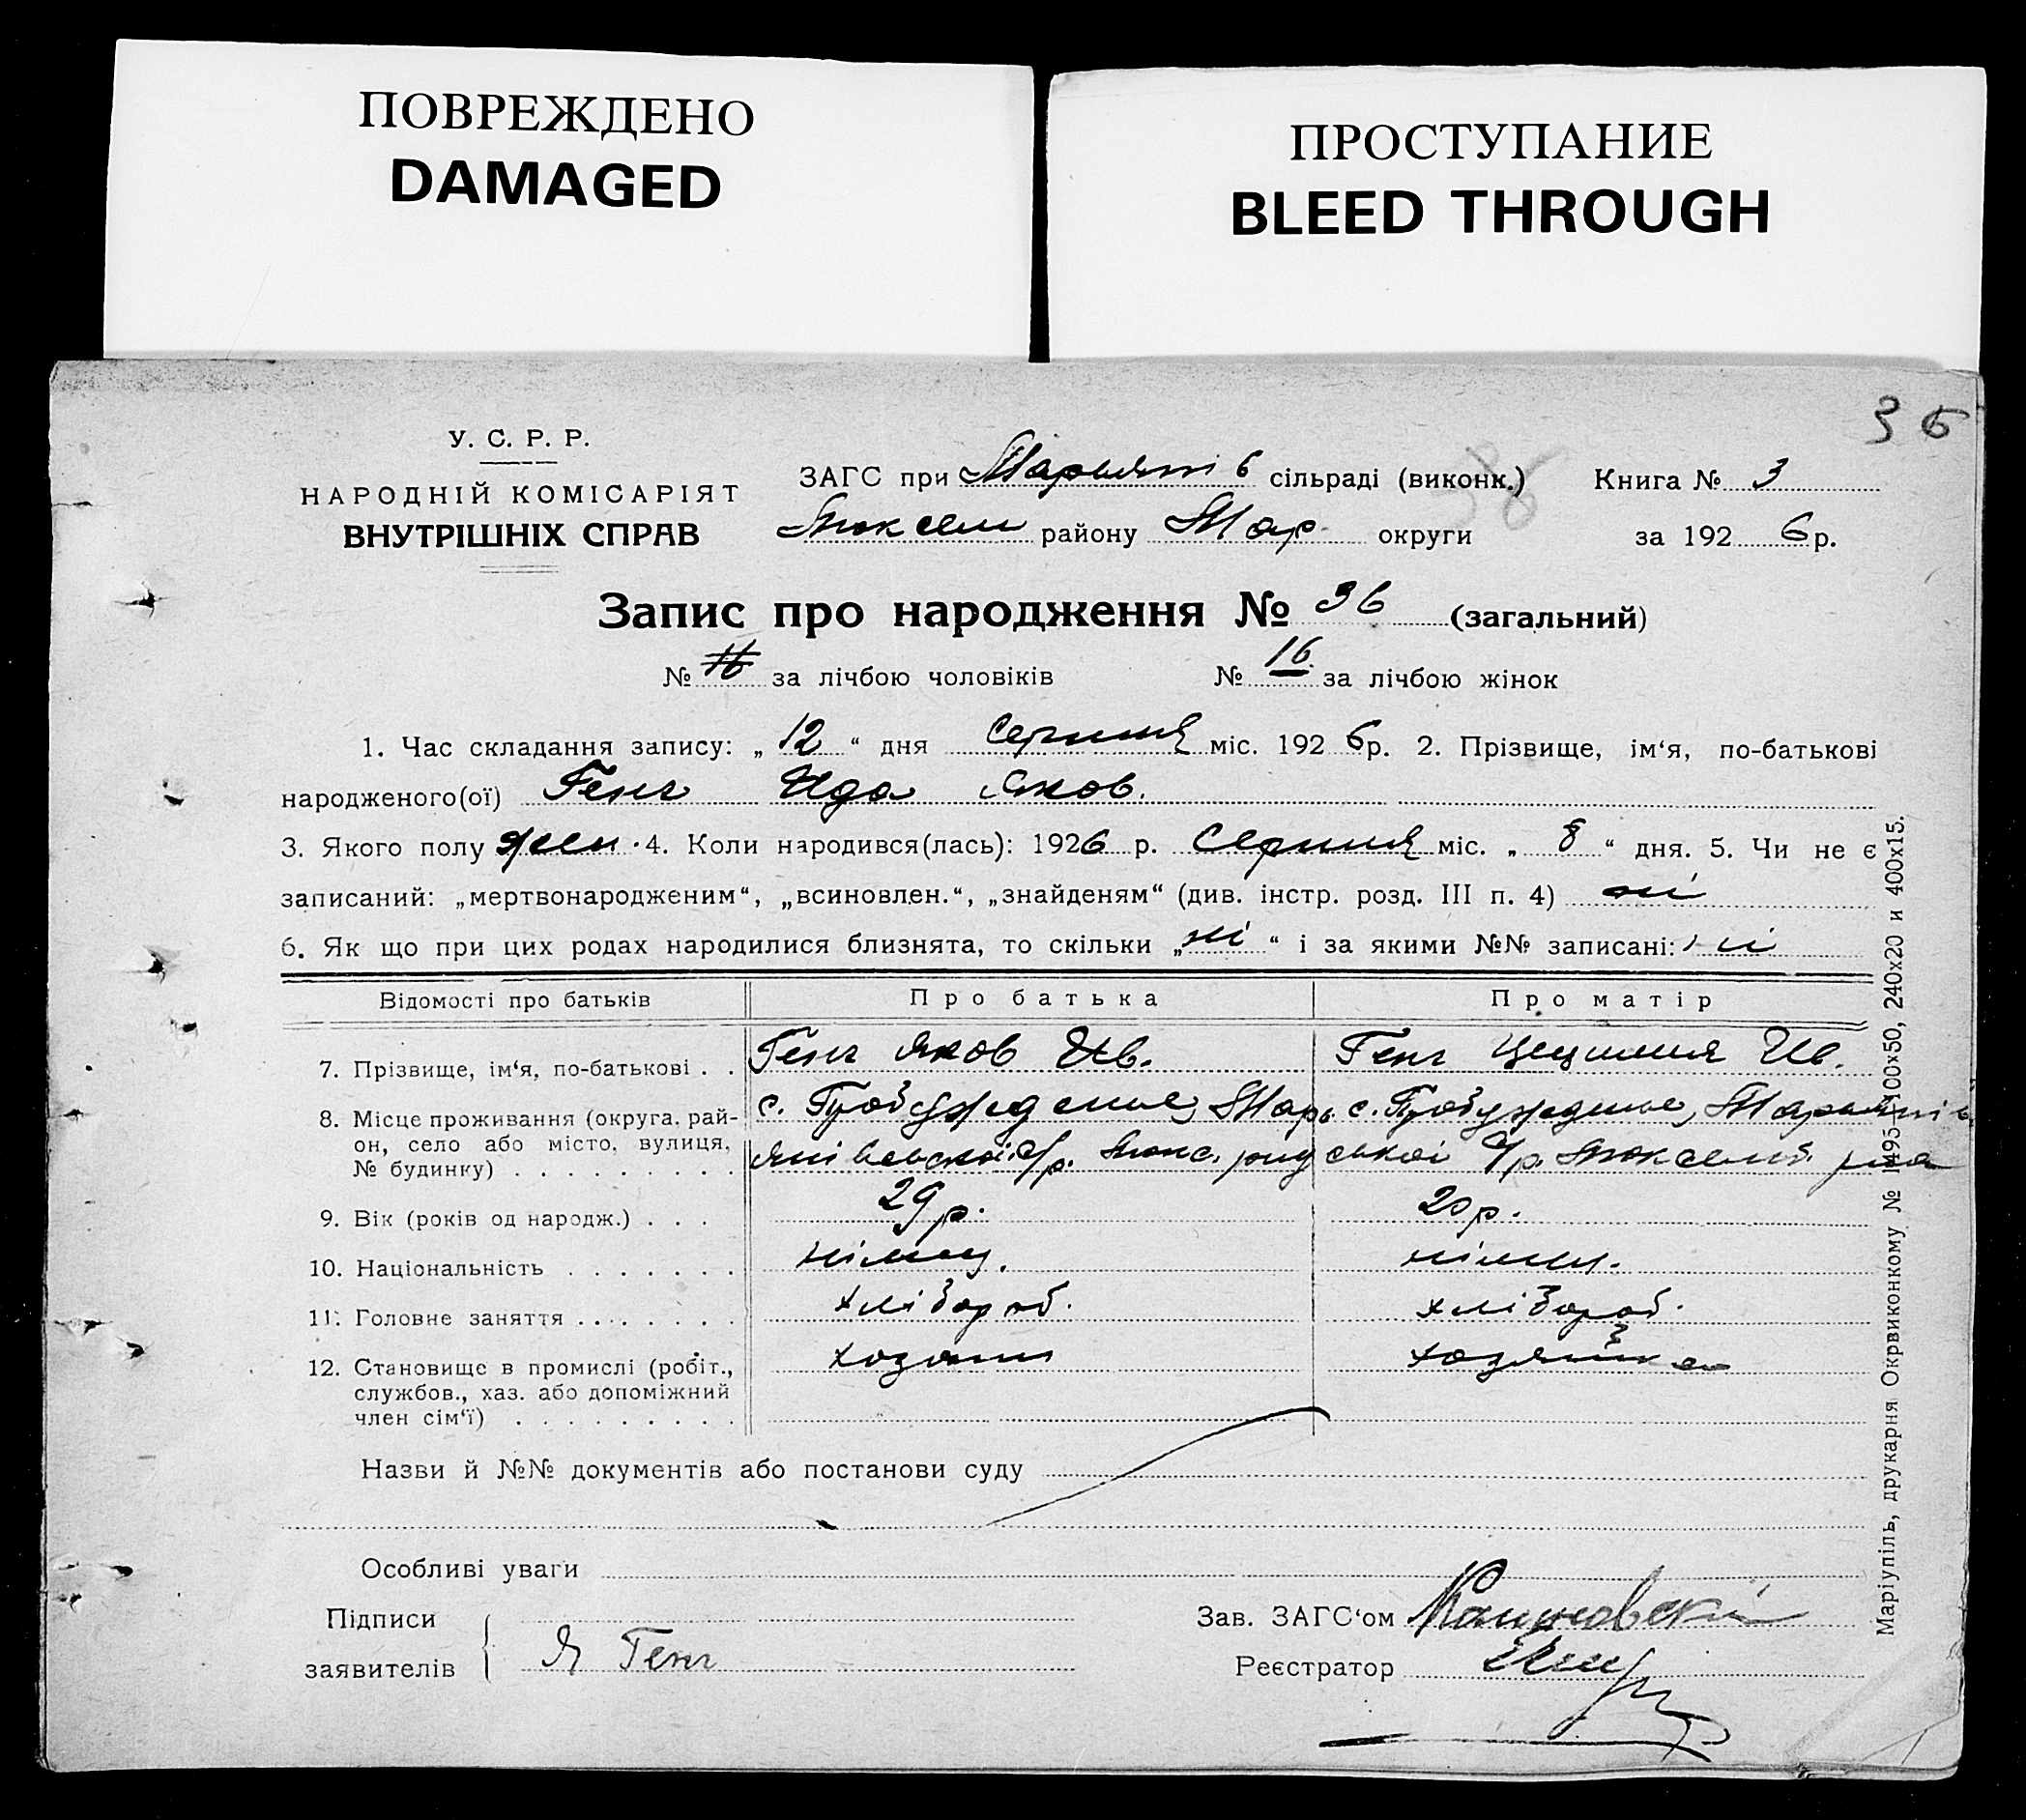 ПОВРЕЖДЕНО
DAMAGED
ПРОСТУПАНИЕ
BLEED THROUGH
36
У. С. Р. Р.
НАРОДНІЙ КОМІСАРІЯТ
ВНУТРІШНІХ СПРАВ
ЗАГС при сільраді (виконк.) Книга № 3
району Мар округи за 1926 р.
38
Запис про народження № 36 (загальний)
№ 16 за лічбою чоловіків № 16 за лічбою жінок
1. Час складання запису: „ 12 “ дня Серпня міс. 1926 р. 2. Прізвище, ім‘я, по-батькові
народженого(ої) Генг Ида Яков.
3. Якого полу жен. 4. Коли народився(лась): 1926 р. Серпня міс. „ 8 “ дня. 5. Чи не є
записаний: „мертвонародженим“, „всиновлен.“, „знайденям“ (див. інстр. розд. III п. 4) ні
6. Як що при цих родах народилися близнята, то скільки „ ні “ і за якими №№ записані: ні
Відомості про батьків Про батька Про матір
7. Прізвище, ім‘я, по-батькові . . Генг Яков Ив. Генг Цецилия Ив.
8. Місце проживання (округа, рай- с. Пробуждение, Марь с. Пробуждение,
он, село або місто, вулиця, с/р. ської с/р.
№ будинку) . . . . . . . . .
9. Вік (років од народж.) . . . 29 р. 20 р.
10. Національність . . . . . . . німец. німец.
11. Головне заняття . . . . . . . хлібороб. хлібороб.
12. Становище в промислі (робіт., хозяин хозяйка
службов., хаз. або допоміжний
член сім‘ї) . . . . . . . . .
Назви й №№ документів або постанови суду
Особливі уваги
Підписи
заявителів Я Генг
Зав. ЗАГС‘ом
Реєстратор
Маріупіль, друкарня Окрвиконкому № 1495—100х50, 240х20 и 400х15.